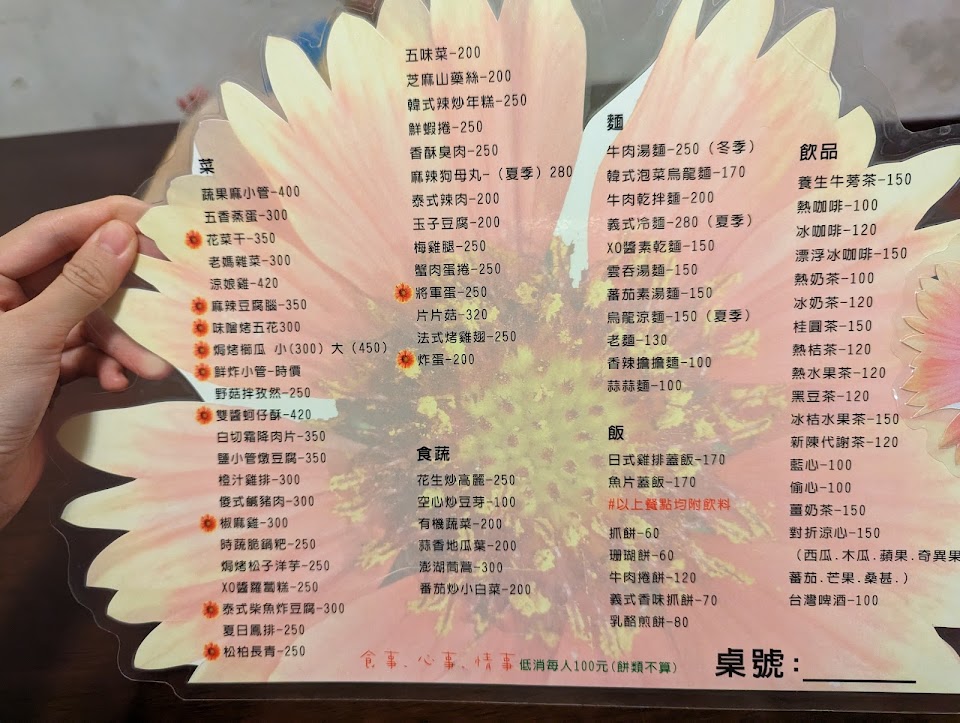 菜
蔬果麻小管-400
五香蒸蛋-300
花菜干-350
老媽雜菜-300
涼娘雞-420
麻辣豆腐腦-350
味噌烤五花300
焗烤櫛瓜 小(300) 大(450)
鮮炸小管-時價
野菇拌孜然-250
雙醬蚵仔酥-420
白切霜降肉片-350
鹽小管燉豆腐-350
橙汁雞排-300
傻式鹹豬肉-300
椒麻雞-300
時蔬脆鍋粑-250
焗烤松子洋芋-250
XO醬蘿蔔糕-250
泰式柴魚炸豆腐-300
夏日鳳排-250
松柏長青-250
五味菜-200
芝麻山藥絲-200
韓式辣炒年糕-250
鮮蝦捲-250
香酥臭肉-250
麻辣狗母丸-(夏季)280
泰式辣肉-200
玉子豆腐-200
梅雞腿-250
蟹肉蛋捲-250
將軍蛋-250
片片菇-320
法式烤雞翅-250
炸蛋-200
食蔬
花生炒高麗-250
空心炒豆芽-100
有機蔬菜-200
蒜香地瓜葉-200
澎湖茼蒿-300
番茄炒小白菜-200
麵
牛肉湯麵-250(冬季)
韓式泡菜烏龍麵-170
牛肉乾拌麵-200
義式冷麵-280(夏季)
XO醬素乾麵-150
雲吞湯麵-150
蕃茄素湯麵-150
烏龍涼麵-150(夏季)
老麵-130
香辣擔擔麵-100
蒜蒜麵-100
飯
日式雞排蓋飯-170
魚片蓋飯-170
#以上餐點均附飲料
抓餅-60
珊瑚餅-60
牛肉捲餅-120
義式香味抓餅-70
乳酪煎餅-80
飲品
養生牛蒡茶-150
熱咖啡-100
冰咖啡-120
漂浮冰咖啡-150
熱奶茶-100
冰奶茶-120
桂圓茶-150
熱桔茶-120
熱水果茶-120
黑豆茶-120
冰桔水果茶-150
新陳代謝茶-120
藍心-100
偷心-100
薑奶茶-150
對折涼心-150
(西瓜.木瓜.蘋果.奇異果
蕃茄.芒果.桑葚.)
台灣啤酒-100
食事.心事.情事 低消每人100元(餅類不算)
桌號: